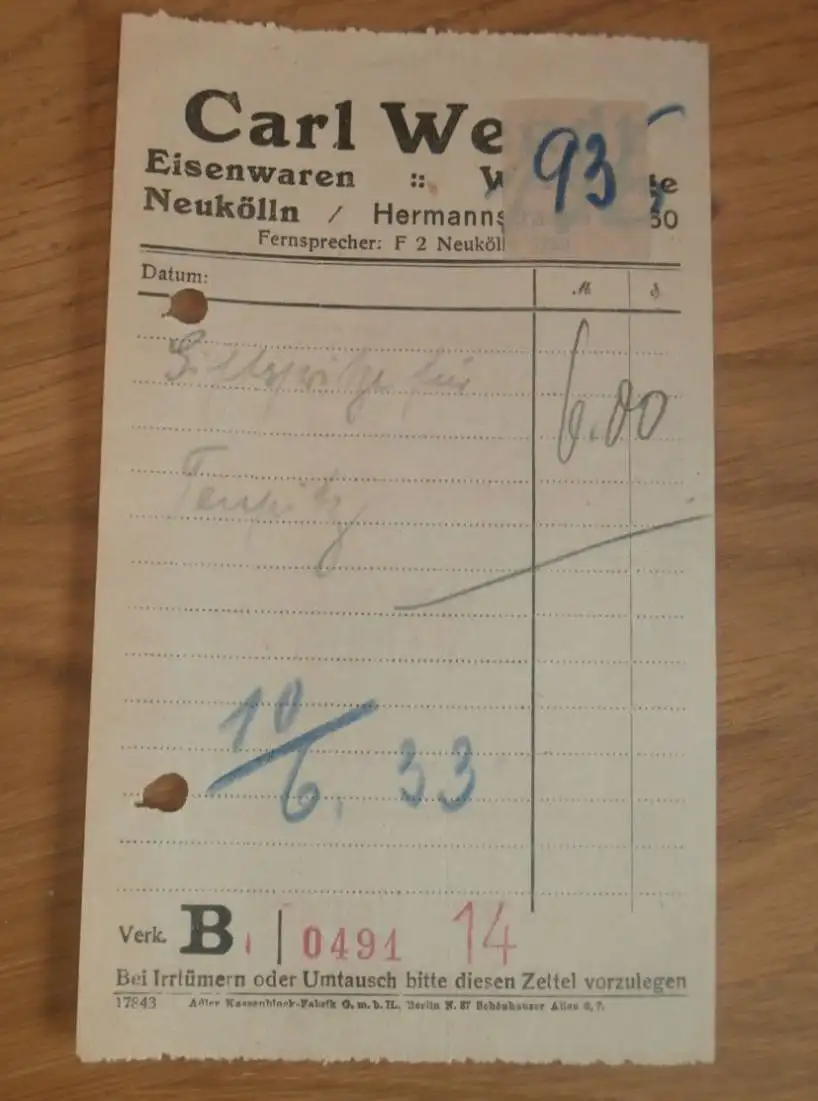 Carl We
93
Eisenwaren :: W
Neukölln / Hermanns 50
Fernsprecher: F 2 Neuköl
Datum: ℳ ₰
für 6.00
Teupitz
10/6. 33
Verk. B. 0491 14
Bei Irrtümern oder Umtausch bitte diesen Zettel vorzulegen
17843 Adler Kassenblock-Fabrik G. m. b. H., Berlin N. 37 Schönhauser Allee 6, 7.